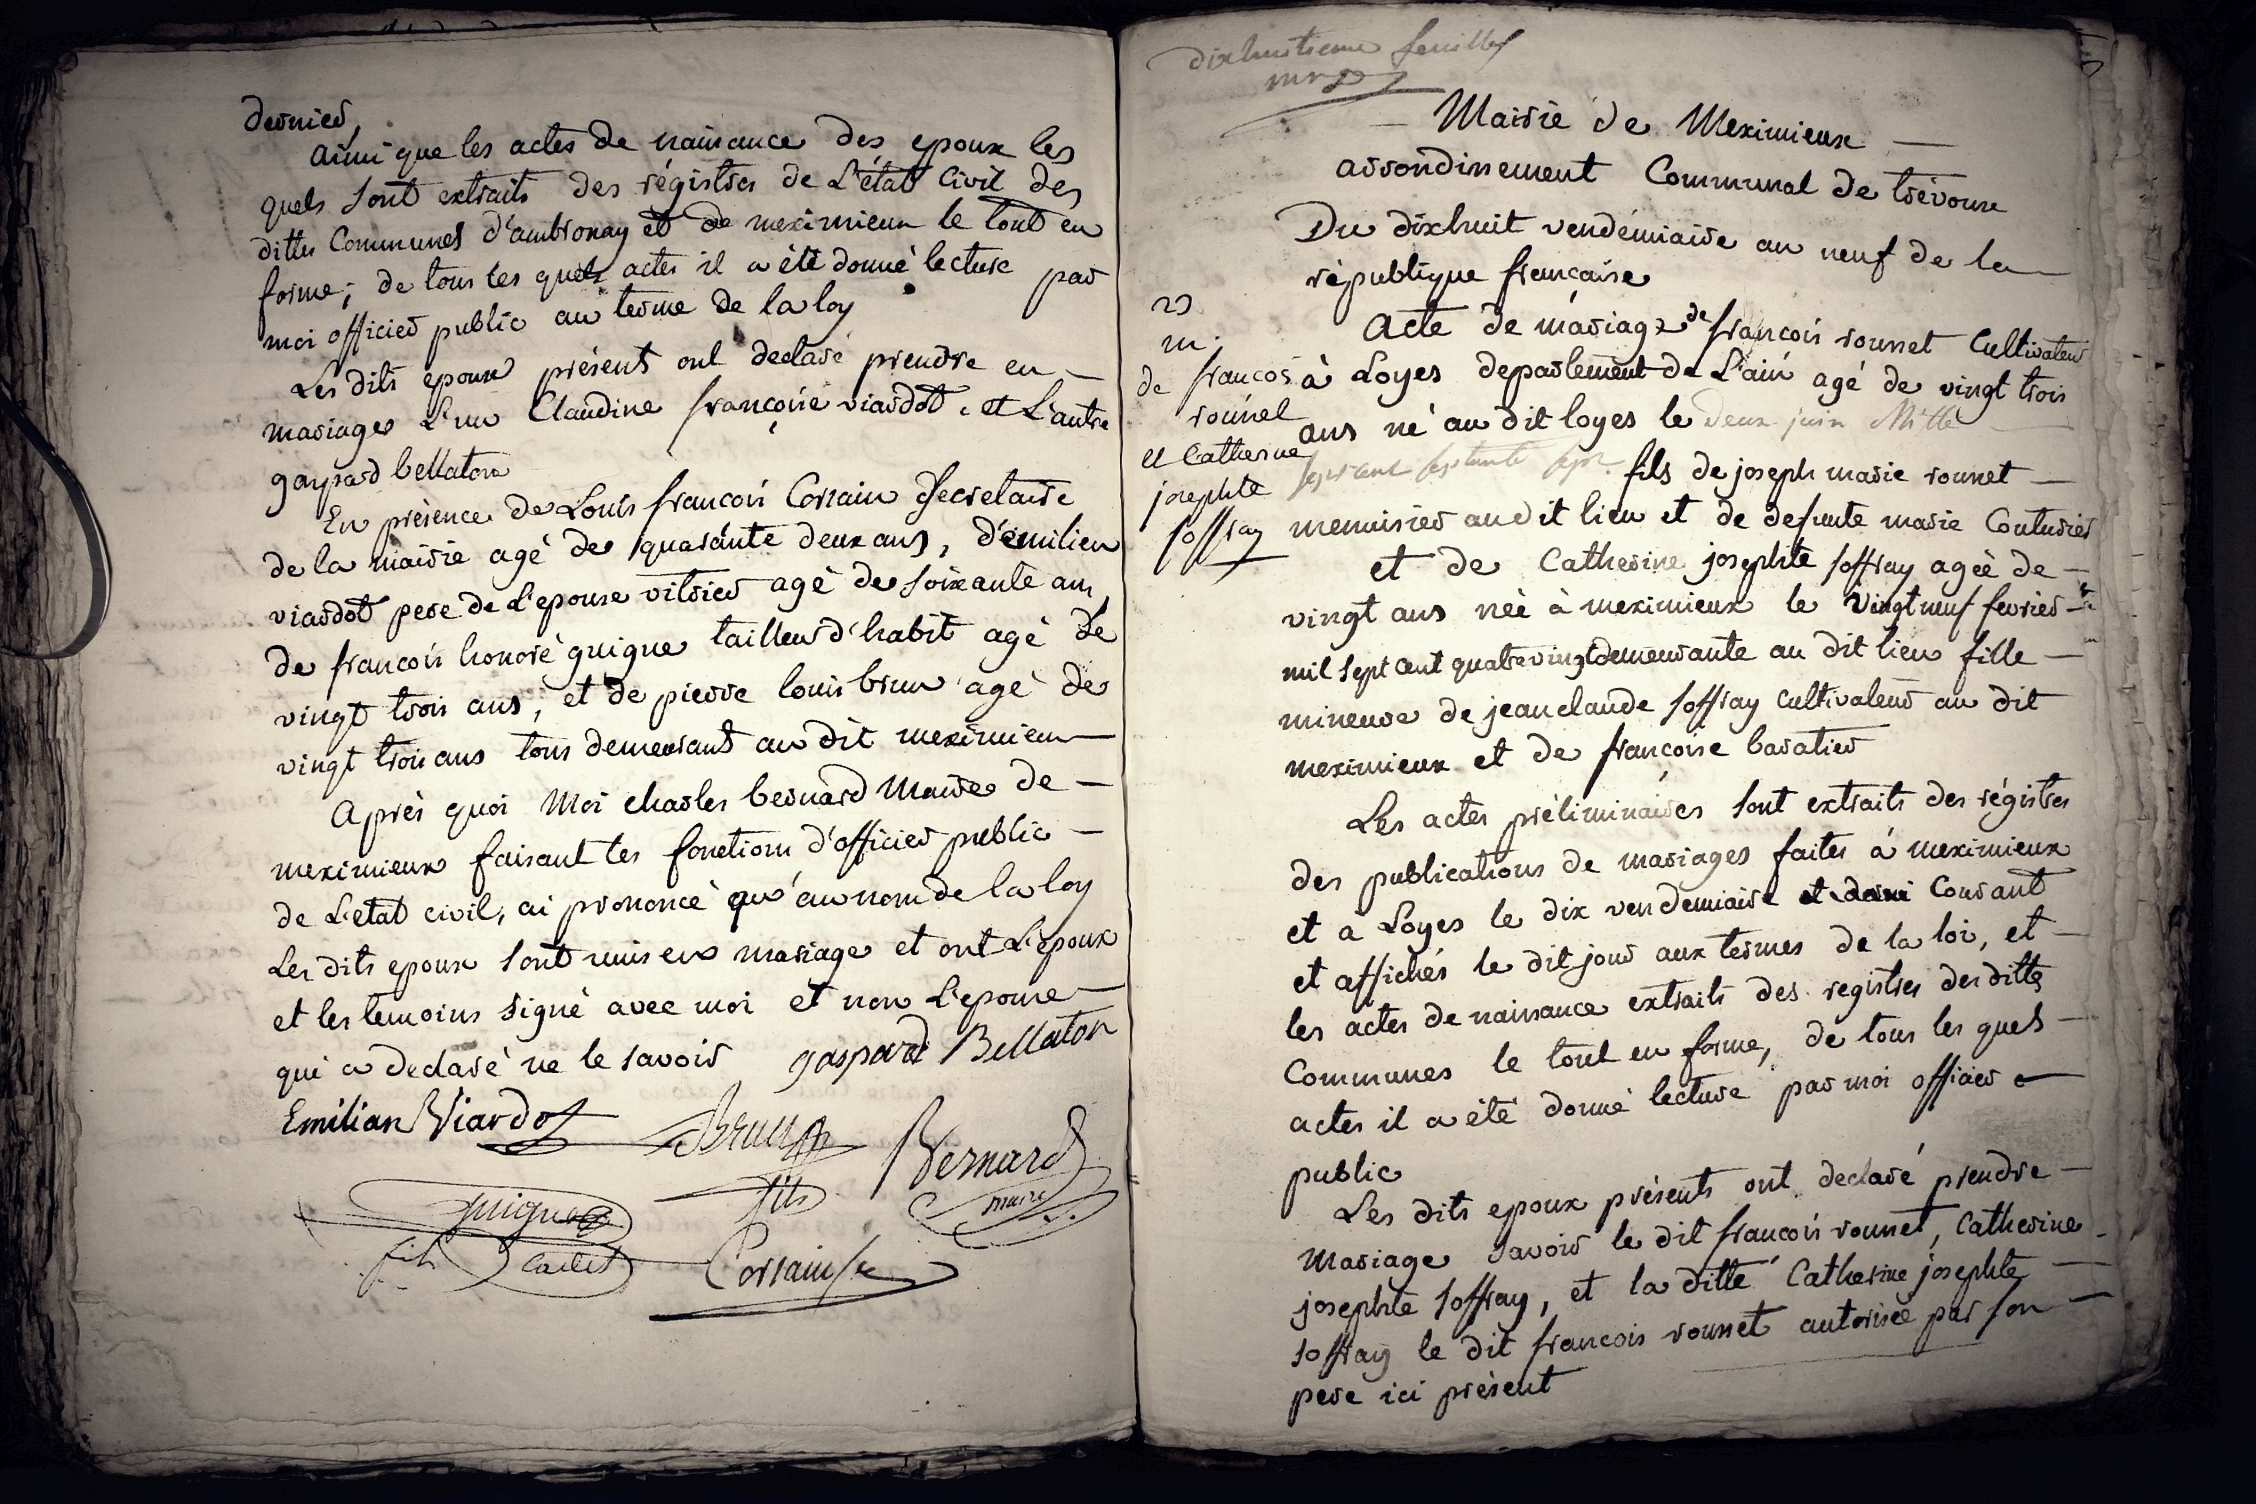 dernier,
ainsi que les actes de naissance des epoux les
quels sont extraits des régistres de L'état Civil des
dittes Communes d'ambronay et de meximieux le tout en
forme; de tous les quels actes il a été donné lecture par
moi officier public au terme de la loy
Les dits epoux présents ont declaré prendre en
mariage L'un Claudine françoise viardot, et L'autre
gaspard bellaton
En présence de Louis francois Corsain Secretaire
de la mairie agé de quarante deux ans, d'emilien
viardot pere de L'epouse vitrier agé de soixante ans,
de francois honoré guigue tailleur d'habit agé de
vingt trois ans, et de pierre louis brun agé de
vingt trois ans tous demeurant au dit meximieux
Après quoi Moi charles bernard Maire de
meximieux faisant les fonctions d'officier public
de L'etat civil, ai prononcé qu'au nom de la loy
Les dits epoux sont unis en mariage et ont L'epoux
et les temoins signé avec moi et non L'epouse
qui a declaré ne le savoir gaspard Bellaton
Emilian Viardot
Brun
fils
Bernard
maire
guigue
fils Cadet
Corsain
dixhuitieme feuillet
Mairie de Meximieux
arrondissement Communal de trévoux
Du dixhuit vendémiaire an neuf de la
république française
m.
de francois
rousset
et Catherine
josephte
soffray
Acte de mariage de françois rousset Cultivateur
à Loyes departement de L'ain agé de vingt trois
ans né au dit loyes le deux juin Mille
sept cent septante sept. fils de joseph marie rousset
menuisier au dit lieu et de defunte marie Couturier
et de Catherine josephte soffray agée de
vingt ans née à meximieux le vingt neuf fevrier
mil sept cent quatre vingt demeurante au dit lieu fille
mineure de jean claude soffray cultivateur au dit
meximieux et de françoise baratier
Les actes préliminaires sont extraits des régistres
des publications de mariages faites à meximieux
et a Loyes le dix vendemiaire courant
et affichés le dit jour aux termes de la loi, et
les actes de naissance extraits des registres des dittes
Communes le tout en forme, de tous les quels
actes il a été donné lecture par moi officier
public
Les dits epoux présents ont declaré prendre
Mariage savoir le dit francois rousset, Catherine
josephte soffray, et la ditte Catherine josephte
soffray le dit francois rousset autorisée par son
pere ici présent